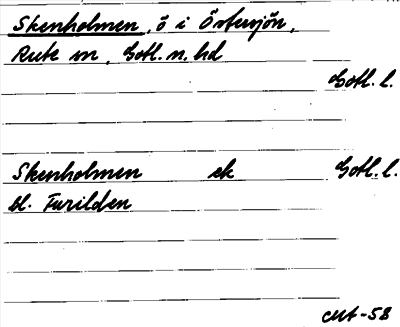 Skenholmen, ö i Östersjön,
Rute sn, Gotl. n. hd
Gotl. l.
Skenholmen ek Gotl. l.
bl. Furilden
CMt-58